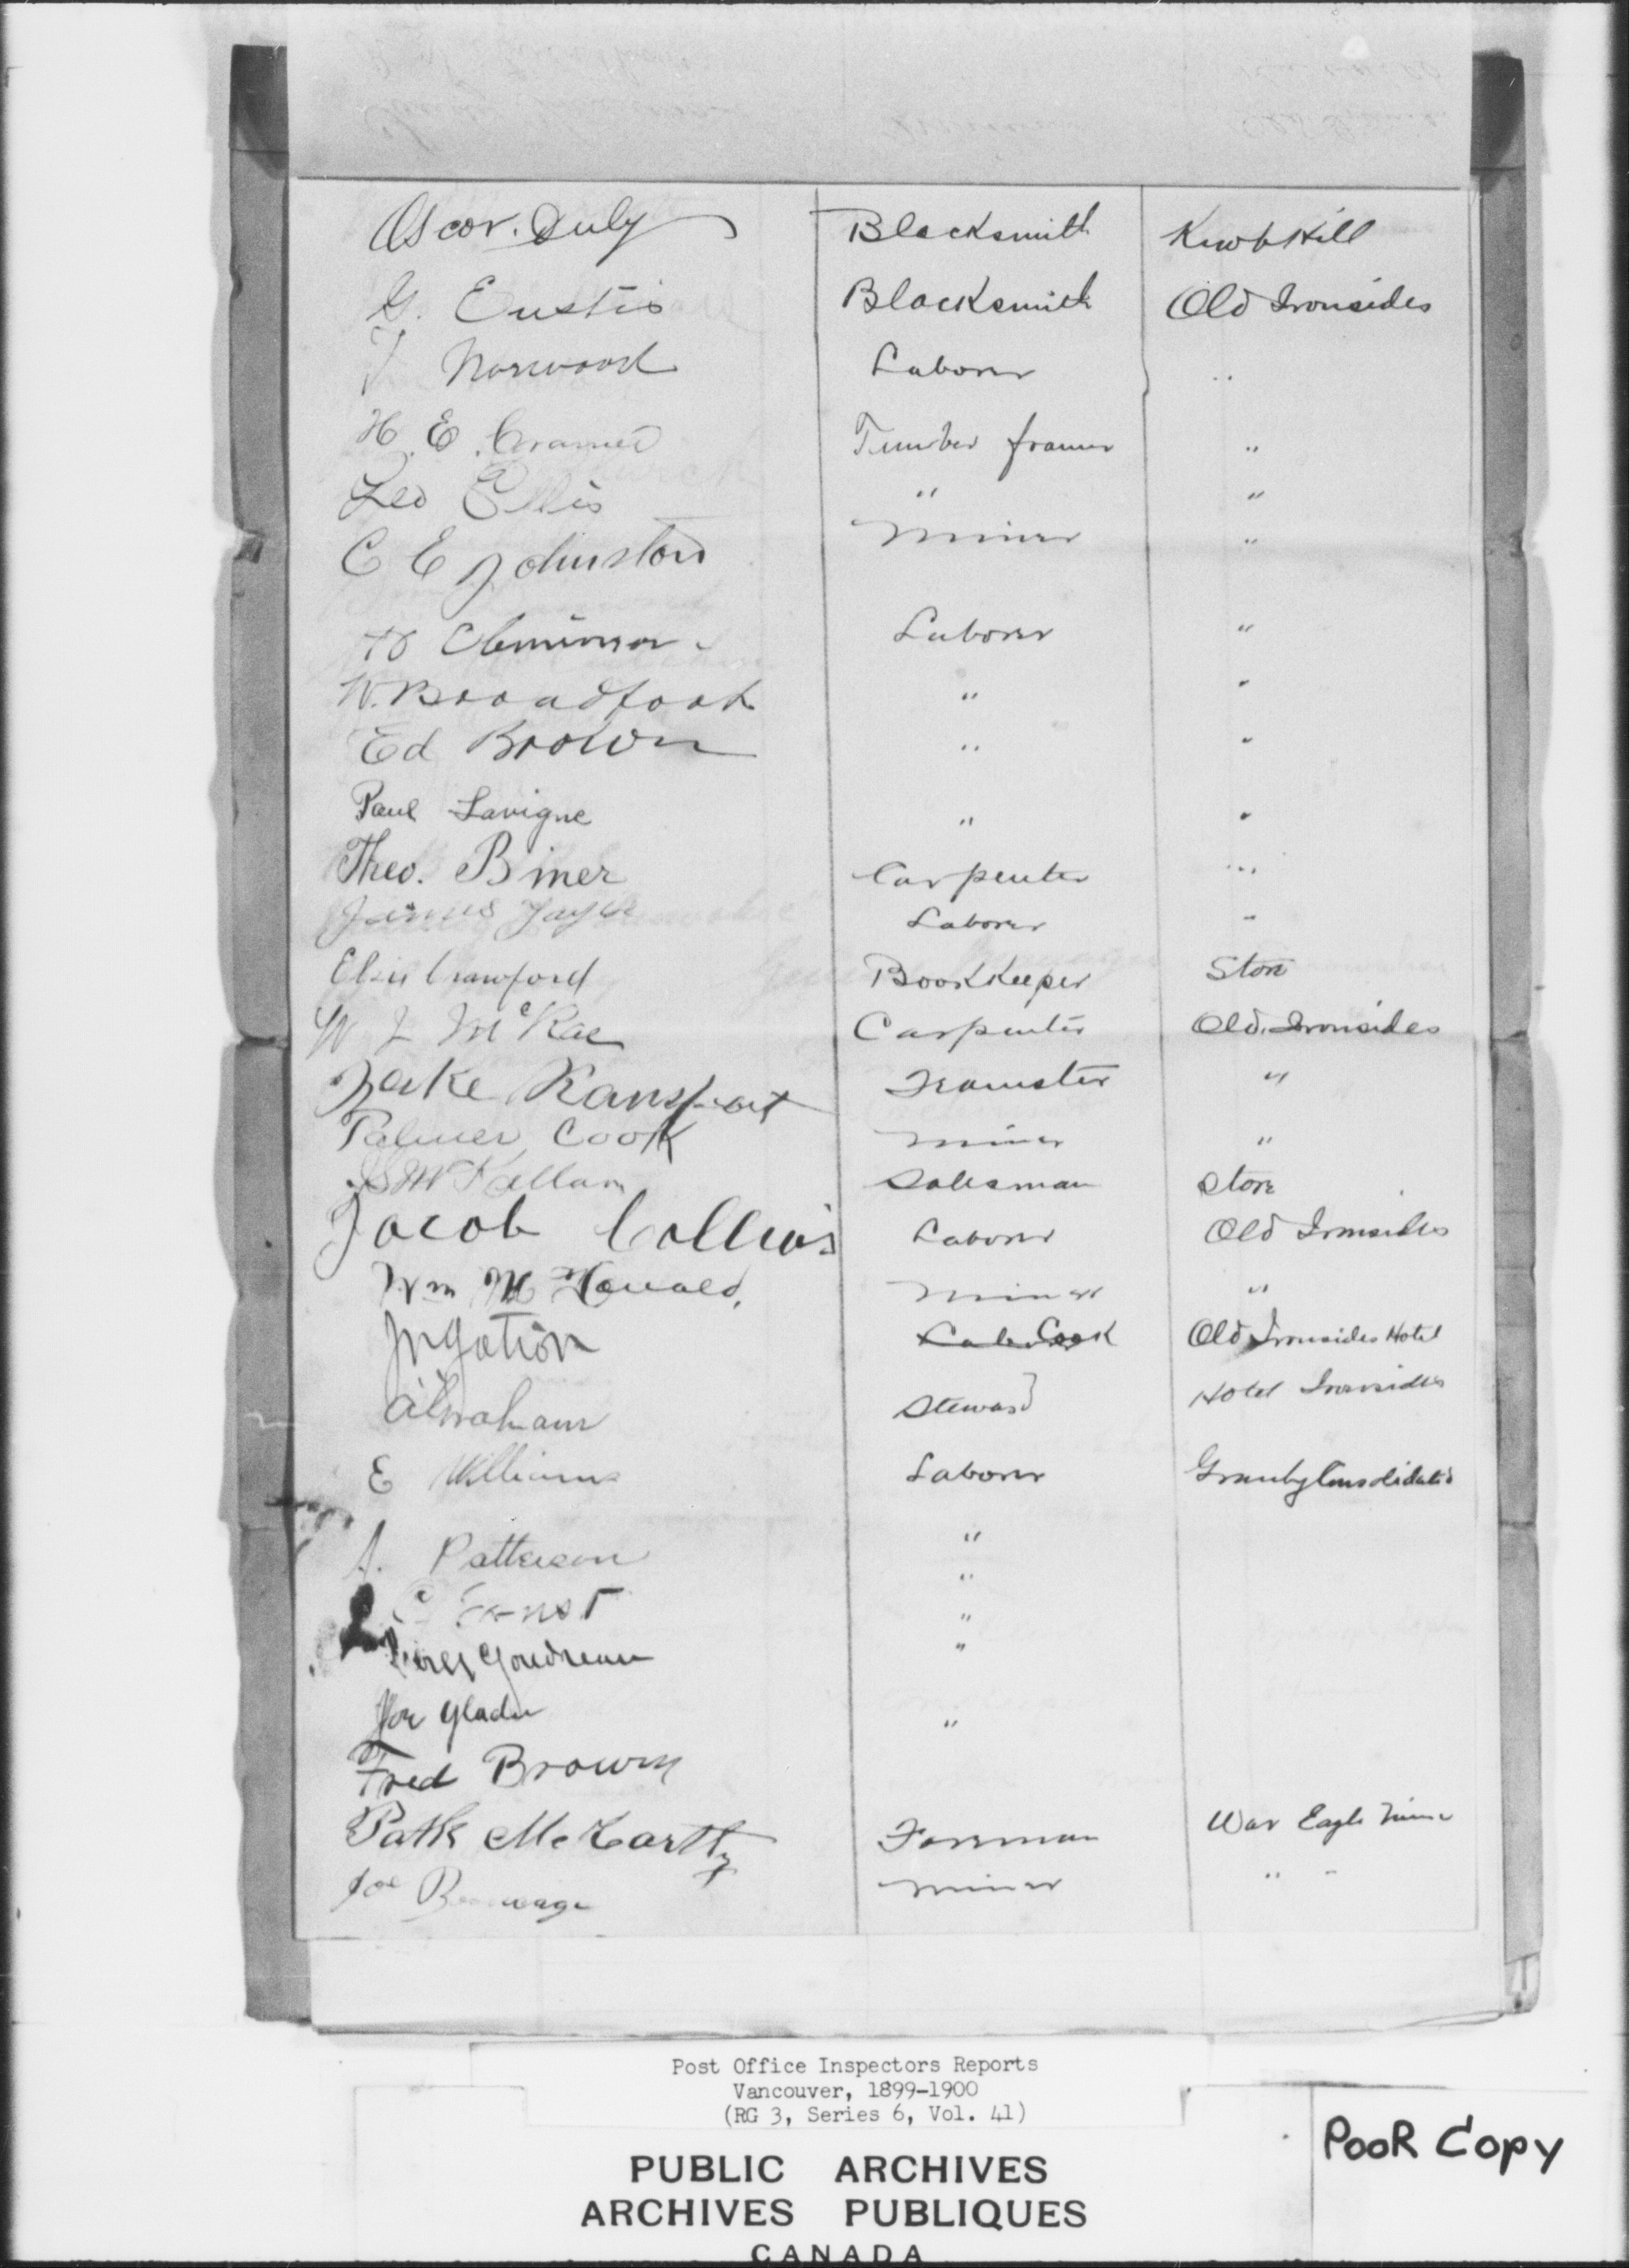 Oscar. Duly Blacksmith Knob Hill
G. Eustis Blacksmith Old Ironsides
Norwood Laborer "
H. E. Cramer Timber framer "
Leo Ellis " "
C E Johnston Miner "
Laborer "
W. Broadfoot " "
Ed Brown " "
Paul Lavigne " "
Theo. Biner Carpenter "
James Laborer "
Crawford Bookkeeper Store
W J McRae Carpenter Old Ironsides
Jake Teamster "
Palmer Cook Miner "
McKallam Salesman Store
Jacob Collins Laborer Old Ironsides
Wm McDonald Miner "
Cook Old Ironsides Hotel
Abraham Steward Hotel Ironsides
E Williams Laborer Granby Consolidated
A. Patterson "
C Ernst "
Goudreau "
Joe Gladu "
Fred Brown
Patk McCarthy Foreman War Eagle Mine
Joe Miner " "
Post Office Inspectors Reports
Vancouver, 1899-1900
(RG 3, Series 6, Vol. 41)
PUBLIC ARCHIVES
ARCHIVES PUBLIQUES
CANADA
POOR Copy